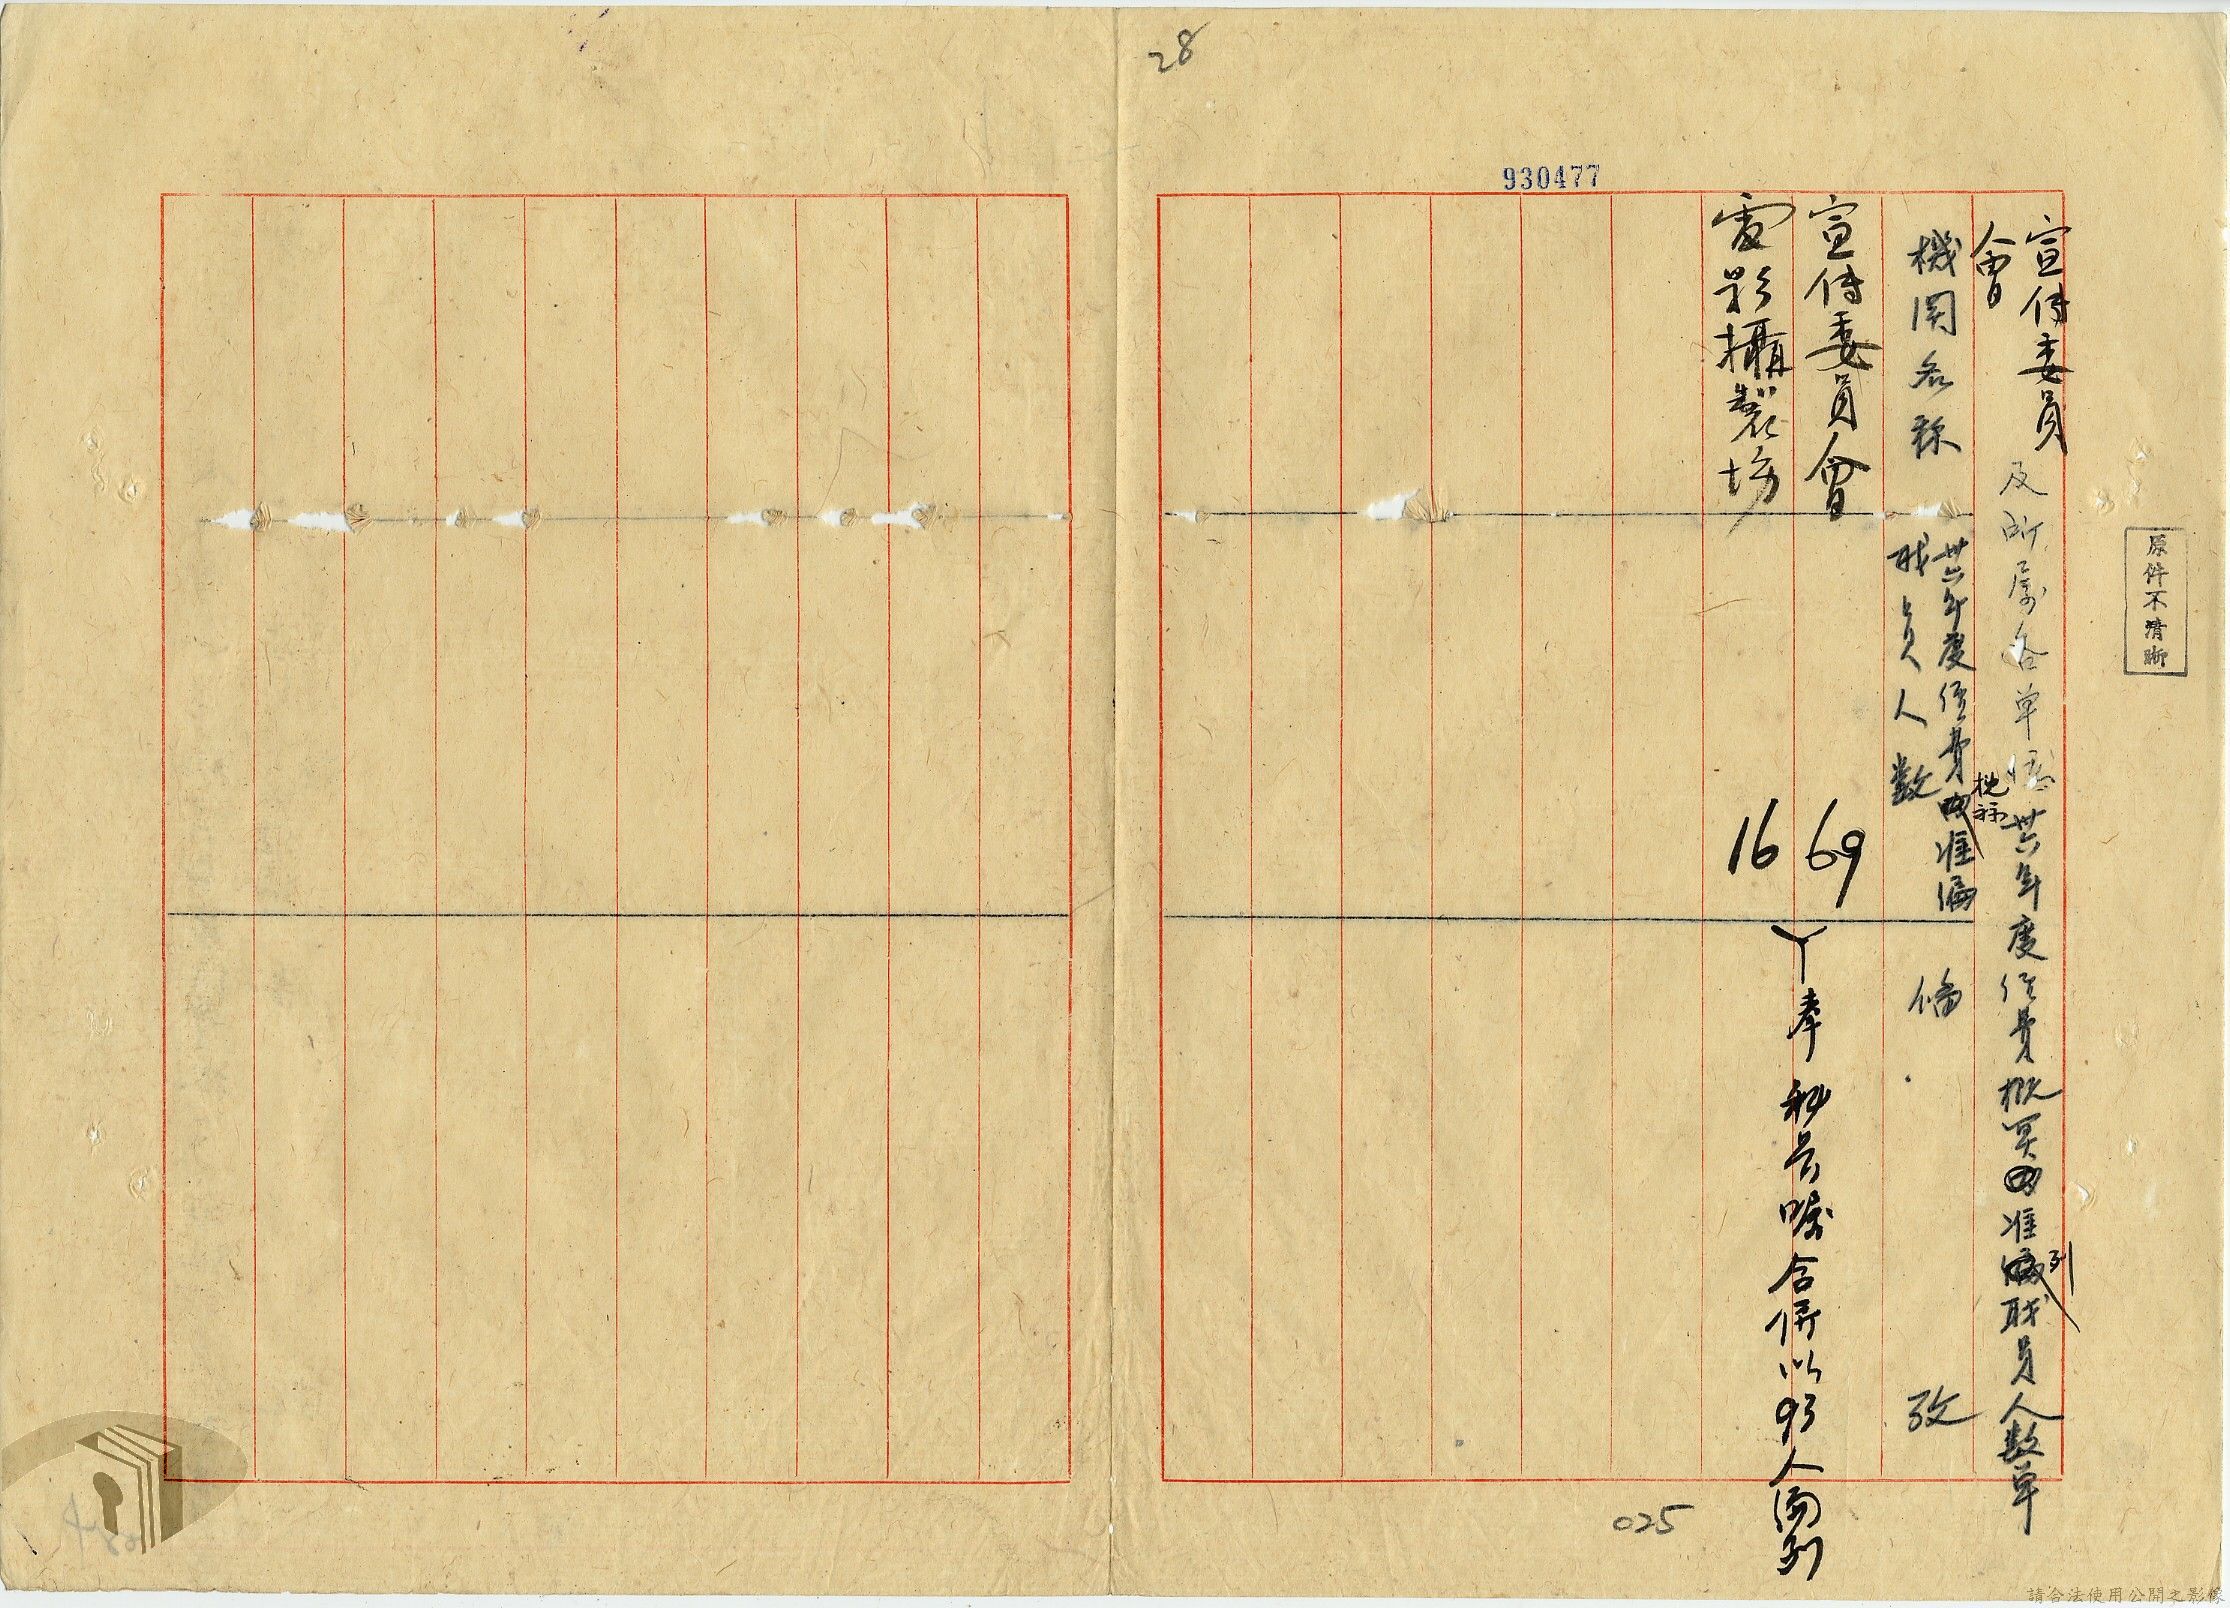 28
930477
宣傳委員會及所屬各單位卅六年度經費概算准列職員人數單
機関名称
卅六年度經費概算准編
职員人數
備
攷
宣傳委員會
69
電影攝製場
16
奉秘長囑合併以93人編列
原件不清晰
025
請合法使用公開之影像